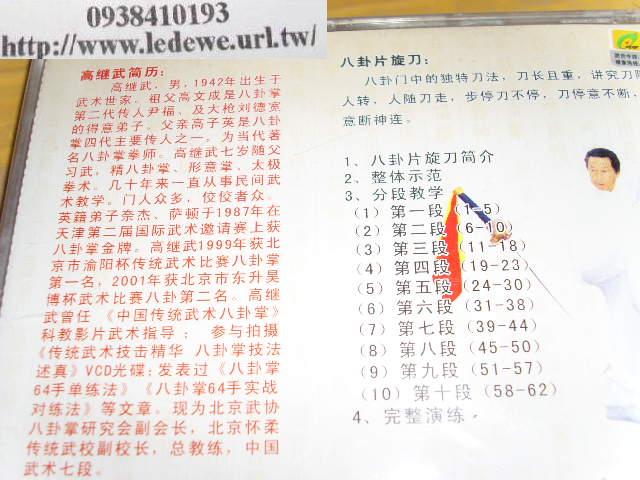 0938410193
http://www.ledewe.url.tw/
高继武简历：
高继武，男，1942年出生于
武术世家。祖父高文成是八卦掌
第二代传人尹福、及大枪刘德宽
的得意弟子。父亲高子英是八卦
掌四代主要传人之一，为当代著
名八卦掌拳师。高继武七岁随父
习武，精八卦掌、形意掌、太极
拳术。几十年来一直从事民间武
术教学。门人众多，佼佼者众。
英籍弟子奈杰、萨顿于1987年在
天津第二届国际武术邀请赛上获
八卦掌金牌。高继武1999年获北
京市渝阳杯传统武术比赛八卦掌
第一名，2001年获北京市东升昊
博杯武术比赛八卦第二名。高继
武曾任《中国传统武术八卦掌》
科教影片武术指导； 参与拍摄
《传统武术技击精华 八卦掌技法
述真》VCD光碟；发表过《八卦掌
64手单练法》《八卦掌64手实战
对练法》等文章。现为北京武协
八卦掌研究会副会长，北京怀柔
传统武校副校长，总教练，中国
武术七段。
八卦片旋刀：
八卦门中的独特刀法，刀长且重，讲究刀随
人转，人随刀走，步停刀不停，刀停意不断，
意断神连。
1、八卦片旋刀简介
2、整体示范
3、分段教学
（1）第一段（1-5）
（2）第二段（6-10）
（3）第三段（11-18）
（4）第四段（19-23）
（5）第五段（24-30）
（6）第六段（31-38）
（7）第七段（39-44）
（8）第八段（45-50）
（9）第九段（51-57）
（10）第十段（58-62）
4、完整演练